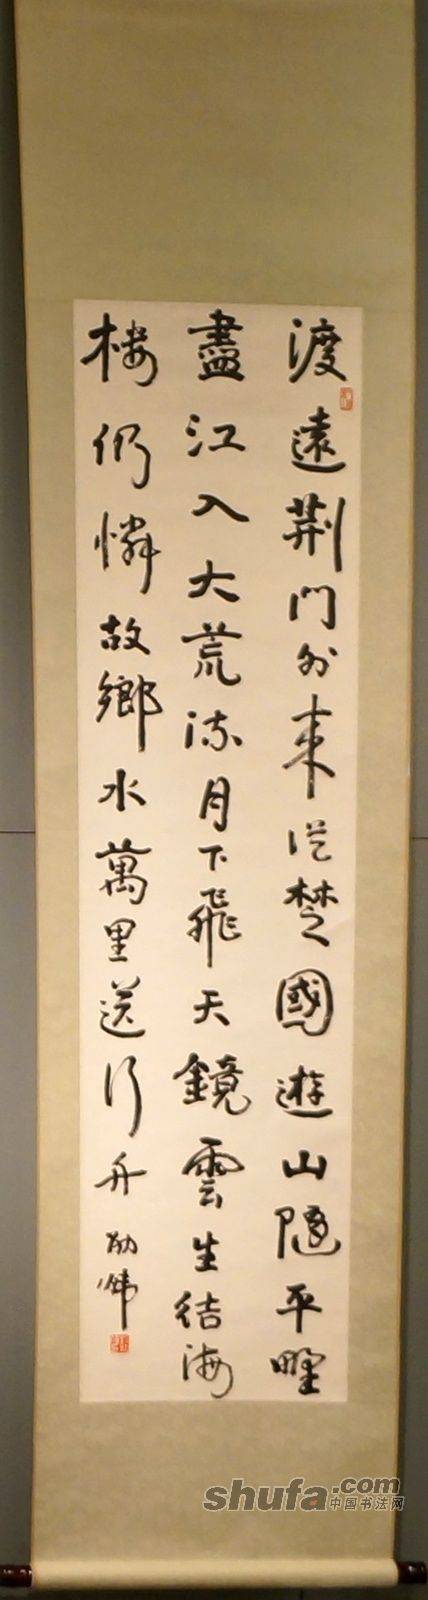 渡遠荆門外来從楚國遊山随平野
盡江入大荒流月下飛天鏡雲生结海
楼仍憐故鄉水萬里送行舟
shufa.com
中国书法网